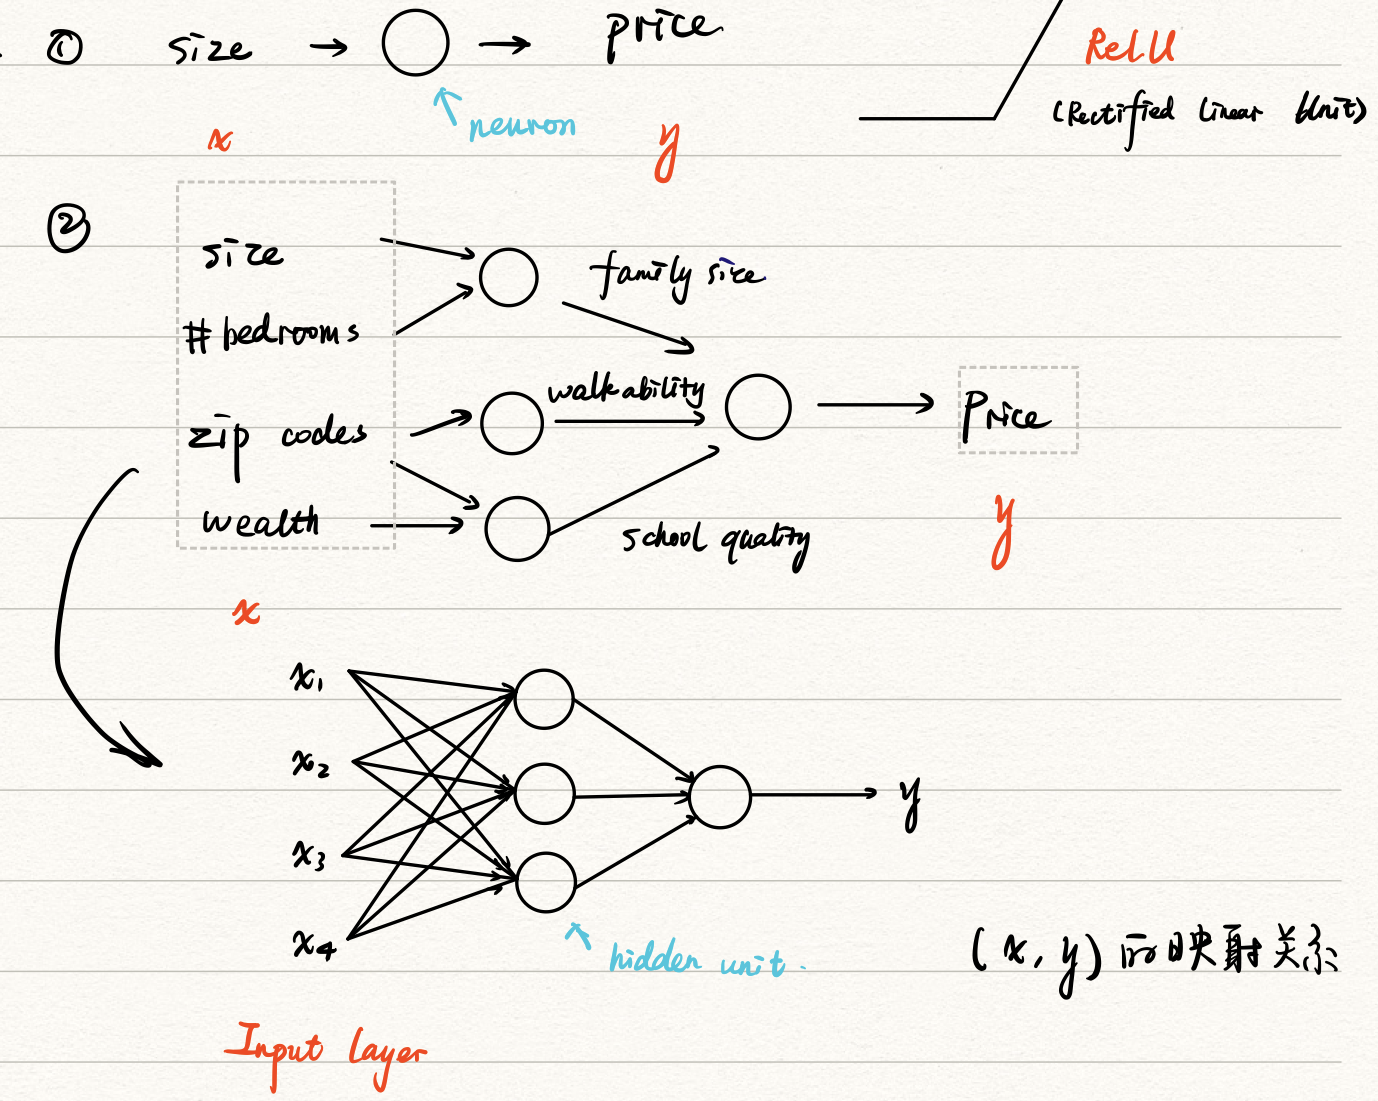 ① size → ○ → price
ReLU
(Rectified Linear Unit)
neuron
x
y
②
size
family size
# bedrooms
walkability
zip codes
Price
wealth
school quality
y
x
x₁
x₂
y
x₃
x₄
hidden unit.
(x, y) 的映射关系
Input Layer